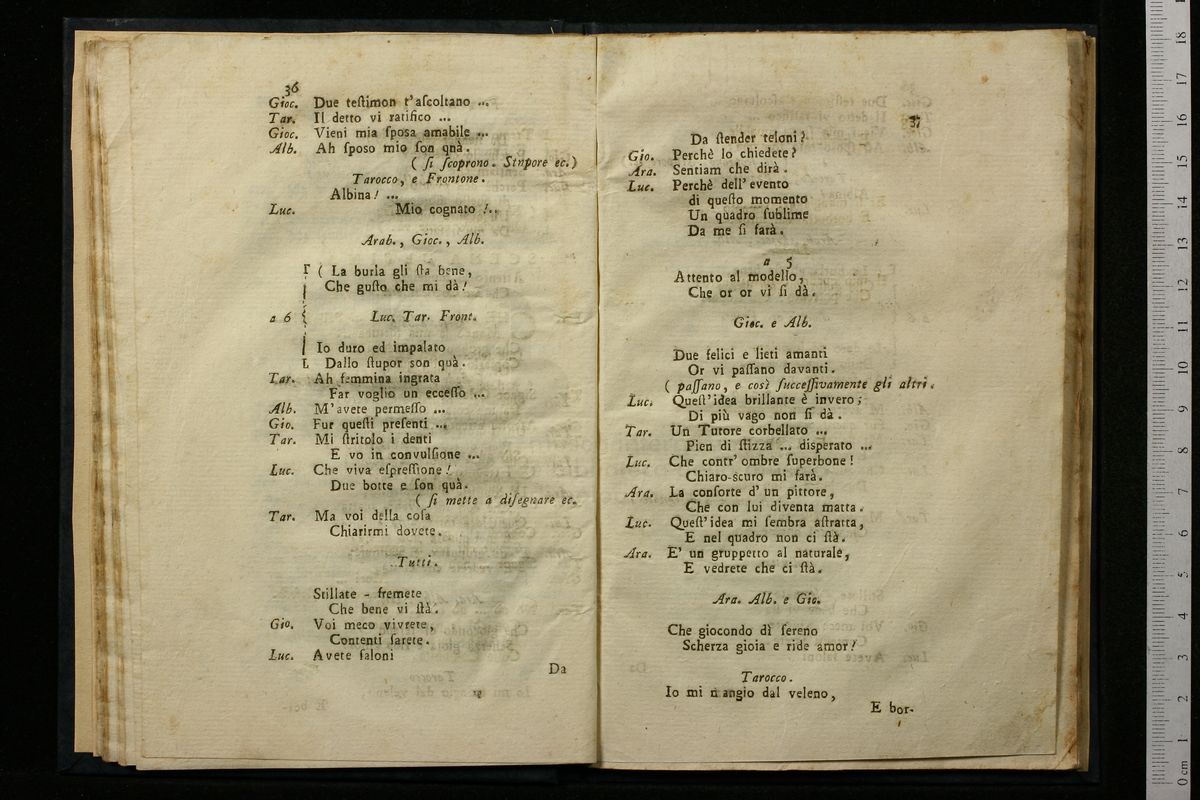 36
Gioc. Due teſtimon t'aſcoltano ...
Tar. Il detto vi ratifico ...
Gioc. Vieni mia ſpoſa amabile ...
Alb. Ah ſpoſo mio ſon qnà.
( ſi ſcoprono. Stnpore ec.)
Tarocco, e Frontone.
Albina! ...
Luc. Mio cognato !..
Arab., Gioc., Alb.
( La burla gli ſta bene,
Che guſto che mi dà!
a 6 Luc. Tar. Front.
Io duro ed impalato
Dallo ſtupor son quà.
Tar. Ah femmina ingrata
Far voglio un ecceſſo ...
Alb. M'avete permeſſo ...
Gio. Fur queſti preſenti ...
Tar. Mi ſtritolo i denti
E vo in convulſione ...
Luc. Che viva eſpreſſione!
Due botte e ſon quà.
( ſi mette a diſegnare ec.
Tar. Ma voi della coſa
Chiarirmi dovete.
Tutti.
Stillate - fremete
Che bene vi ſtà.
Gio. Voi meco vivrete,
Contenti ſarete.
Luc. Avete ſaloni
Da
37
Da ſtender teloni?
Gio. Perchè lo chiedete?
Ara. Sentiam che dirà.
Luc. Perchè dell'evento
di queſto momento
Un quadro ſublime
Da me ſi farà.
a 5
Attento al modello,
Che or or vi ſi dà.
Gioc. e Alb.
Due felici e lieti amanti
Or vi paſſano davanti.
( paſſano, e così ſucceſſivamente gli altri.
Luc. Queſt'idea brillante è invero;
Di più vago non ſi dà.
Tar. Un Tutore corbellato ...
Pien di ſtizza ... disperato ...
Luc. Che contr' ombre ſuperbone!
Chiaro-scuro mi farà.
Ara. La conforte d' un pittore,
Che con lui diventa matta.
Luc. Queſt'idea mi ſembra aſtratta,
E nel quadro non ci ſtà.
Ara. E' un gruppetto al naturale,
E vedrete che ci ſtà.
Ara. Alb. e Gio.
Che giocondo dì ſereno
Scherza gioia e ride amor!
Tarocco.
Io mi mangio dal veleno,
E bor-